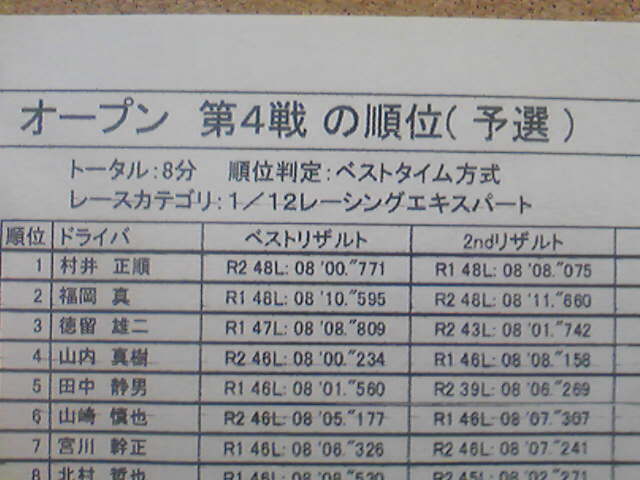 オープン 第4戦 の順位( 予選 )
トータル:8分 順位判定:ベストタイム方式
レースカテゴリ:1/12レーシングエキスパート
順位 ドライバ ベストリザルト 2ndリザルト
1 村井 正順 R2 48L: 08 '00."771 R1 48L: 08 '08."075
2 福岡 真 R1 48L: 08 '10."595 R2 48L: 08 '11."660
3 徳留 雄二 R1 47L: 08 '08."809 R2 43L: 08 '01."742
4 山内 真樹 R2 46L: 08 '00."234 R1 46L: 08 '08."158
5 田中 静男 R1 46L: 08 '01."560 R2 39L: 08 '06."269
6 山崎 慎也 R2 46L: 08 '05."177 R1 46L: 08 '07."307
7 宮川 幹正 R1 46L: 08 '08."326 R2 46L: 08 '07."241
8 北村 哲也 R1 46L: 08 '08."530 R2 45L: 08 '02."271